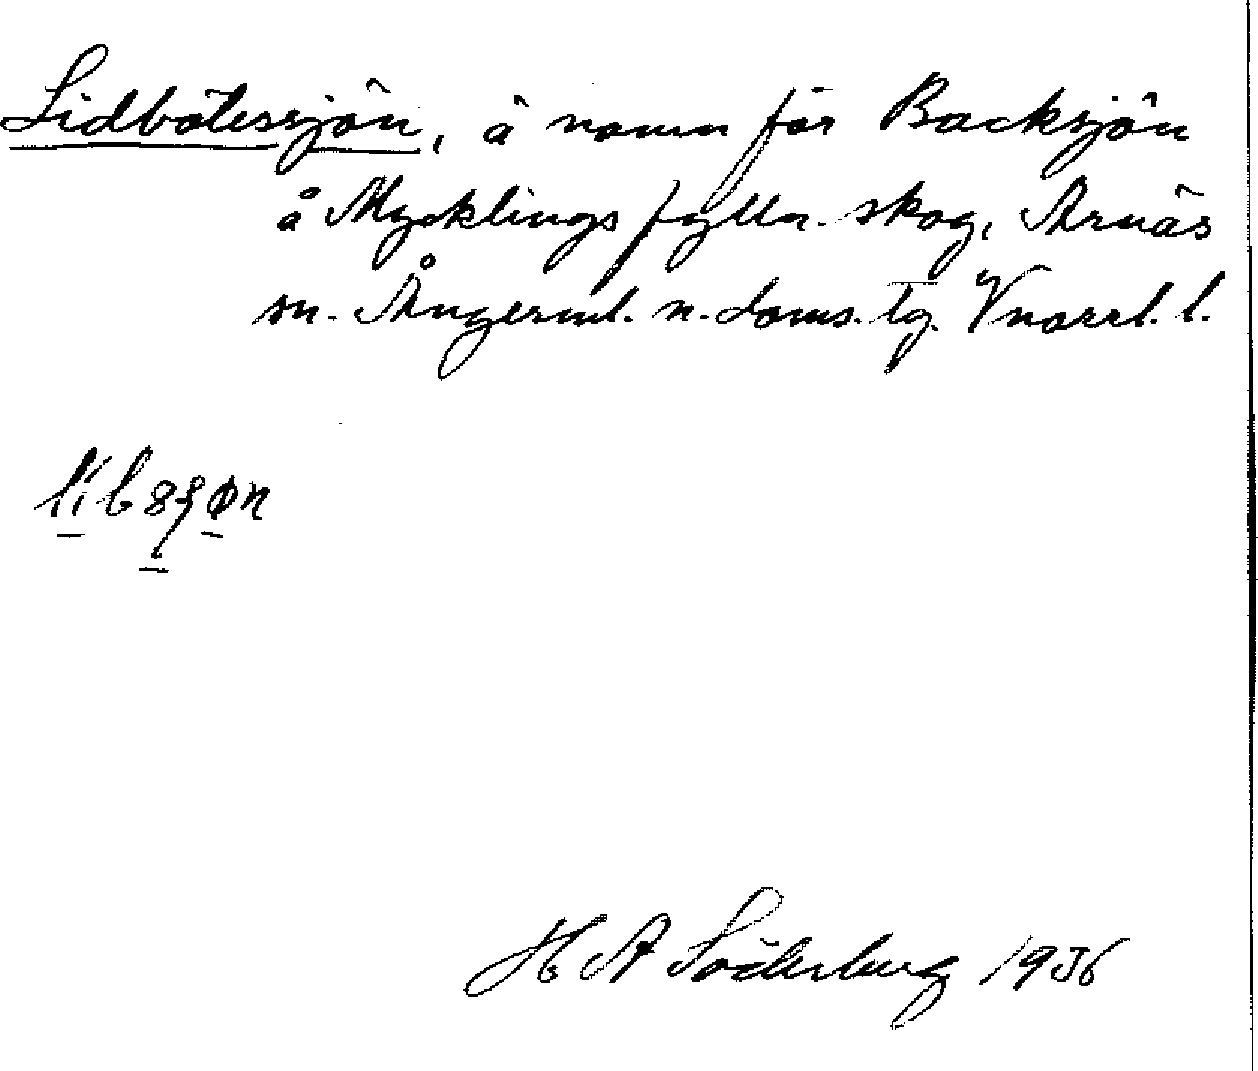 Lidbölessjön, å namn för Backsjön
å Mycklings fylln. skog, Arnäs
sn. Ångerml. n. doms. lg. Vnorrl. l.
H A Söderberg 1936